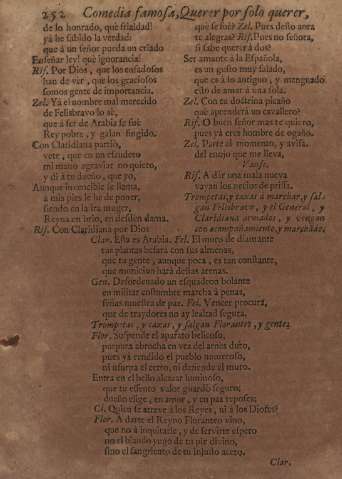 252 Comedia famosa, Querer por solo querer,
de lo honrado, que frialdad!
yà he sabido la verdad:
que à un señor pueda un criado
Enseñar ley! què ignorancia!
Ris. Por Dios, que los enfadosos
han de vèr, que los graciosos
somos gente de importancia.
Zel. Yà el nombre mal merecido
de Felisbravo lo sè,
que à ser de Arabia se fuè
Rey pobre, y galan fingido.
Con Claridiana partiò,
vete, que en un
mi mano agraviar no quiero,
y di à tu dueño, que yo,
Aunque invencible se llama,
à mis pies le he de poner,
siendo en la ira muger,
Reyna en brio, en desden dama.
Ris. Con Claridiana por Dios
que se fuè? Zel. Pues desto aora
te alegras? Ris. Pues no señora,
si sabe querer à dos?
Ser amante à la Española,
es un gusto muy salado,
que era à lo antiguo, y menguado
esto de amar à una sola.
Zel. Con esa doctrina
què aprenderà un cavallero?
Ris. O buen señor mas te quiero,
pues yà eres hombre de ogaño.
Zel. Parte al momento, y avisa
del enojo que me lleva,
Vanse.
Ris. A dàr una mala nueva
vayan los necios de prisa.
Trompetas, y caxas à marchar, y salgan
Felisbravo, y el General, y
Claridiana armados, y vengan
con acompañamiento, y marchando.
Clar. Esta es Arabia. Fel. El muro de diamante
tus plantas besarà con sus almenas,
que tu gente, aunque poca, es tan constante,
que municion harà destas arenas.
Gen. Desordenado un esquadron bolante
en militar costumbre marcha à penas,
señas muestra de paz. Fel. Vencer procura,
que de traydores no ay lealtad segura.
Trompetas, y caxas, y salgan Floranteo, y gente.
Flor. Suspende el aparato belicoso,
purpura abrocha en vez del arnès duro,
pues yà rendido el pueblo numeroso,
ni usurpa el cetro, ni desiende al muro.
Entra en el bello alcazar luminoso,
que tu esento valor guardò seguro;
dueño elige, en amor, y en paz reposes;
Cl. Quien se atreve à los Reyes, ni à los Dioses?
Flor. A darte el Reyno Floranteo vino,
que no à inquietarle, y de servirte espero
no el blando yugo de tu pie divino,
sino el sangriento de tu injusto acero.
Clar.